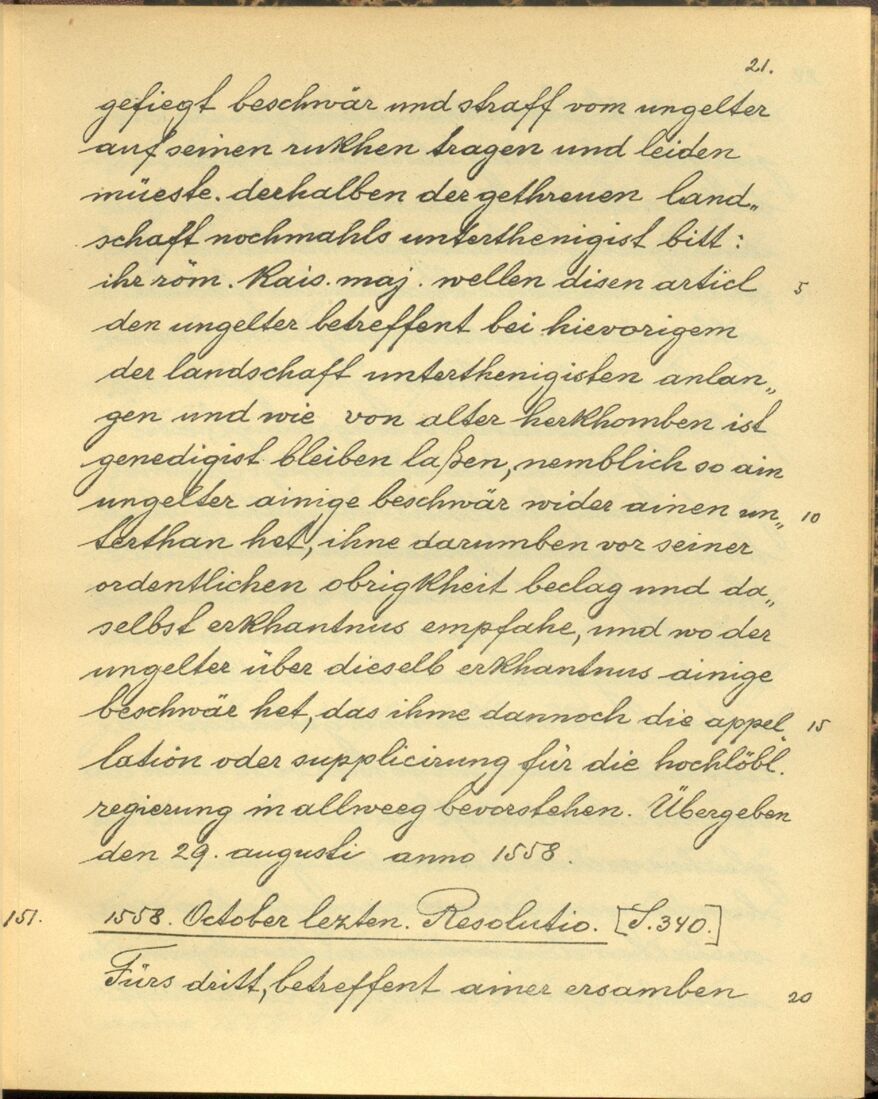 21.
gefiegt beschwär und straff vom ungelter
auf seinen rukhen tragen und leiden
müeste. derhalben der gethreuen land„
schaft nochmahls unterthenigist bitt:
ihr röm. kais. maj. wellen disen articl 5
den ungelter betreffent bei hievorigem
der landschaft unterthenigisten anlan„
gen und wie von alter herkhomben ist
genedigist bleiben laßen, nemblich so ain
ungelter ainige beschwär wider ainen un„ 10
terthan het, ihne darumben vor seiner
ordentlichen obrigkheit beclag und da„
selbst erkhantnus empfahe, und wo der
ungelter über dieselb erkhantnus ainige
beschwär het, das ihme dannoch die appel„ 15
lation oder supplicirung für die hochlöbl.
regierung in allweeg bevorstehen. Übergeben
den 29. augusti anno 1558.
151. 1558. October lezten. Resolutio. [S. 340.]
Fürs dritt, betreffent ainer ersamben 20